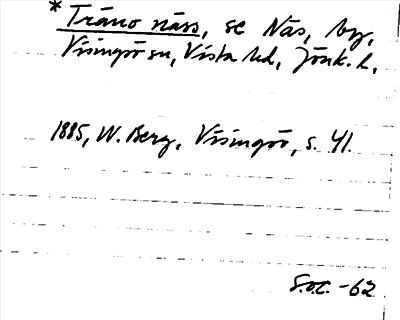 * Träno näss, se Näs, by,
Visingsö sn, Vista hd, Jönk. l.
1885, W. Berg, Visingsö, s. 41.
S.O.C. -62